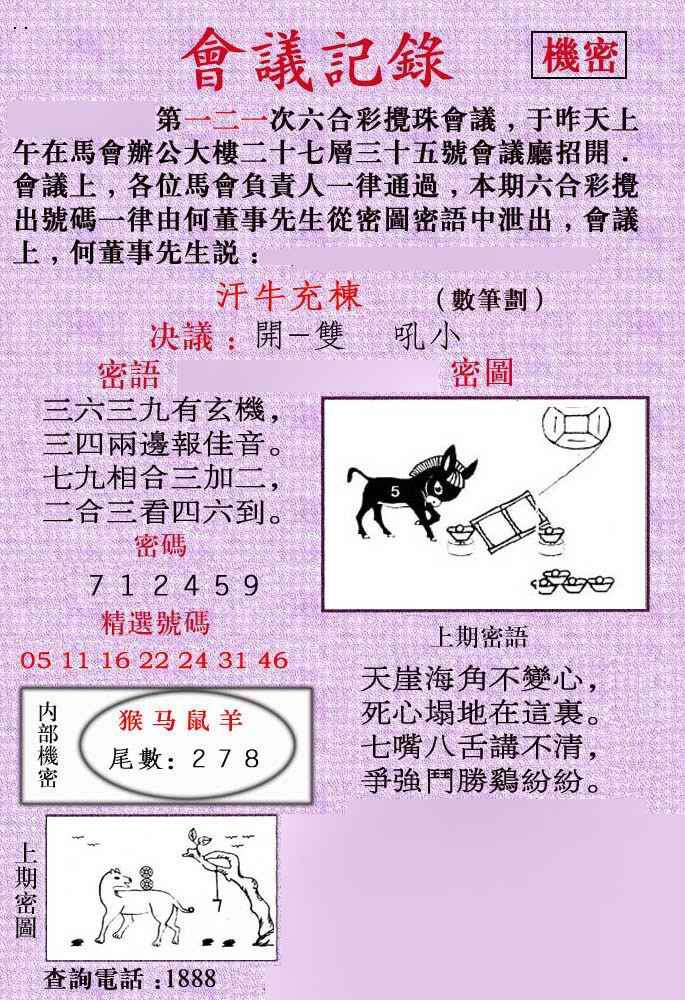 會議記錄
機密
第一二一次六合彩攪珠會議，于昨天上
午在馬會辦公大樓二十七層三十五號會議廳招開．
會議上，各位馬會負責人一律通過，本期六合彩攪
出號碼一律由何董事先生從密圖密語中泄出，會議
上，何董事先生説：
汗牛充棟 （數筆劃）
决議：開－雙 吼小
密語
三六三九有玄機，
三四兩邊報佳音。
七九相合三加二，
二合三看四六到。
密碼
7 1 2 4 5 9
精選號碼
05 11 16 22 24 31 46
内部機密
猴马鼠羊
尾數：2 7 8
密圖
5
上期密語
天崖海角不變心，
死心塌地在這裏。
七嘴八舌講不清，
爭強鬥勝鷄紛紛。
上期密圖
7
查詢電話：1888